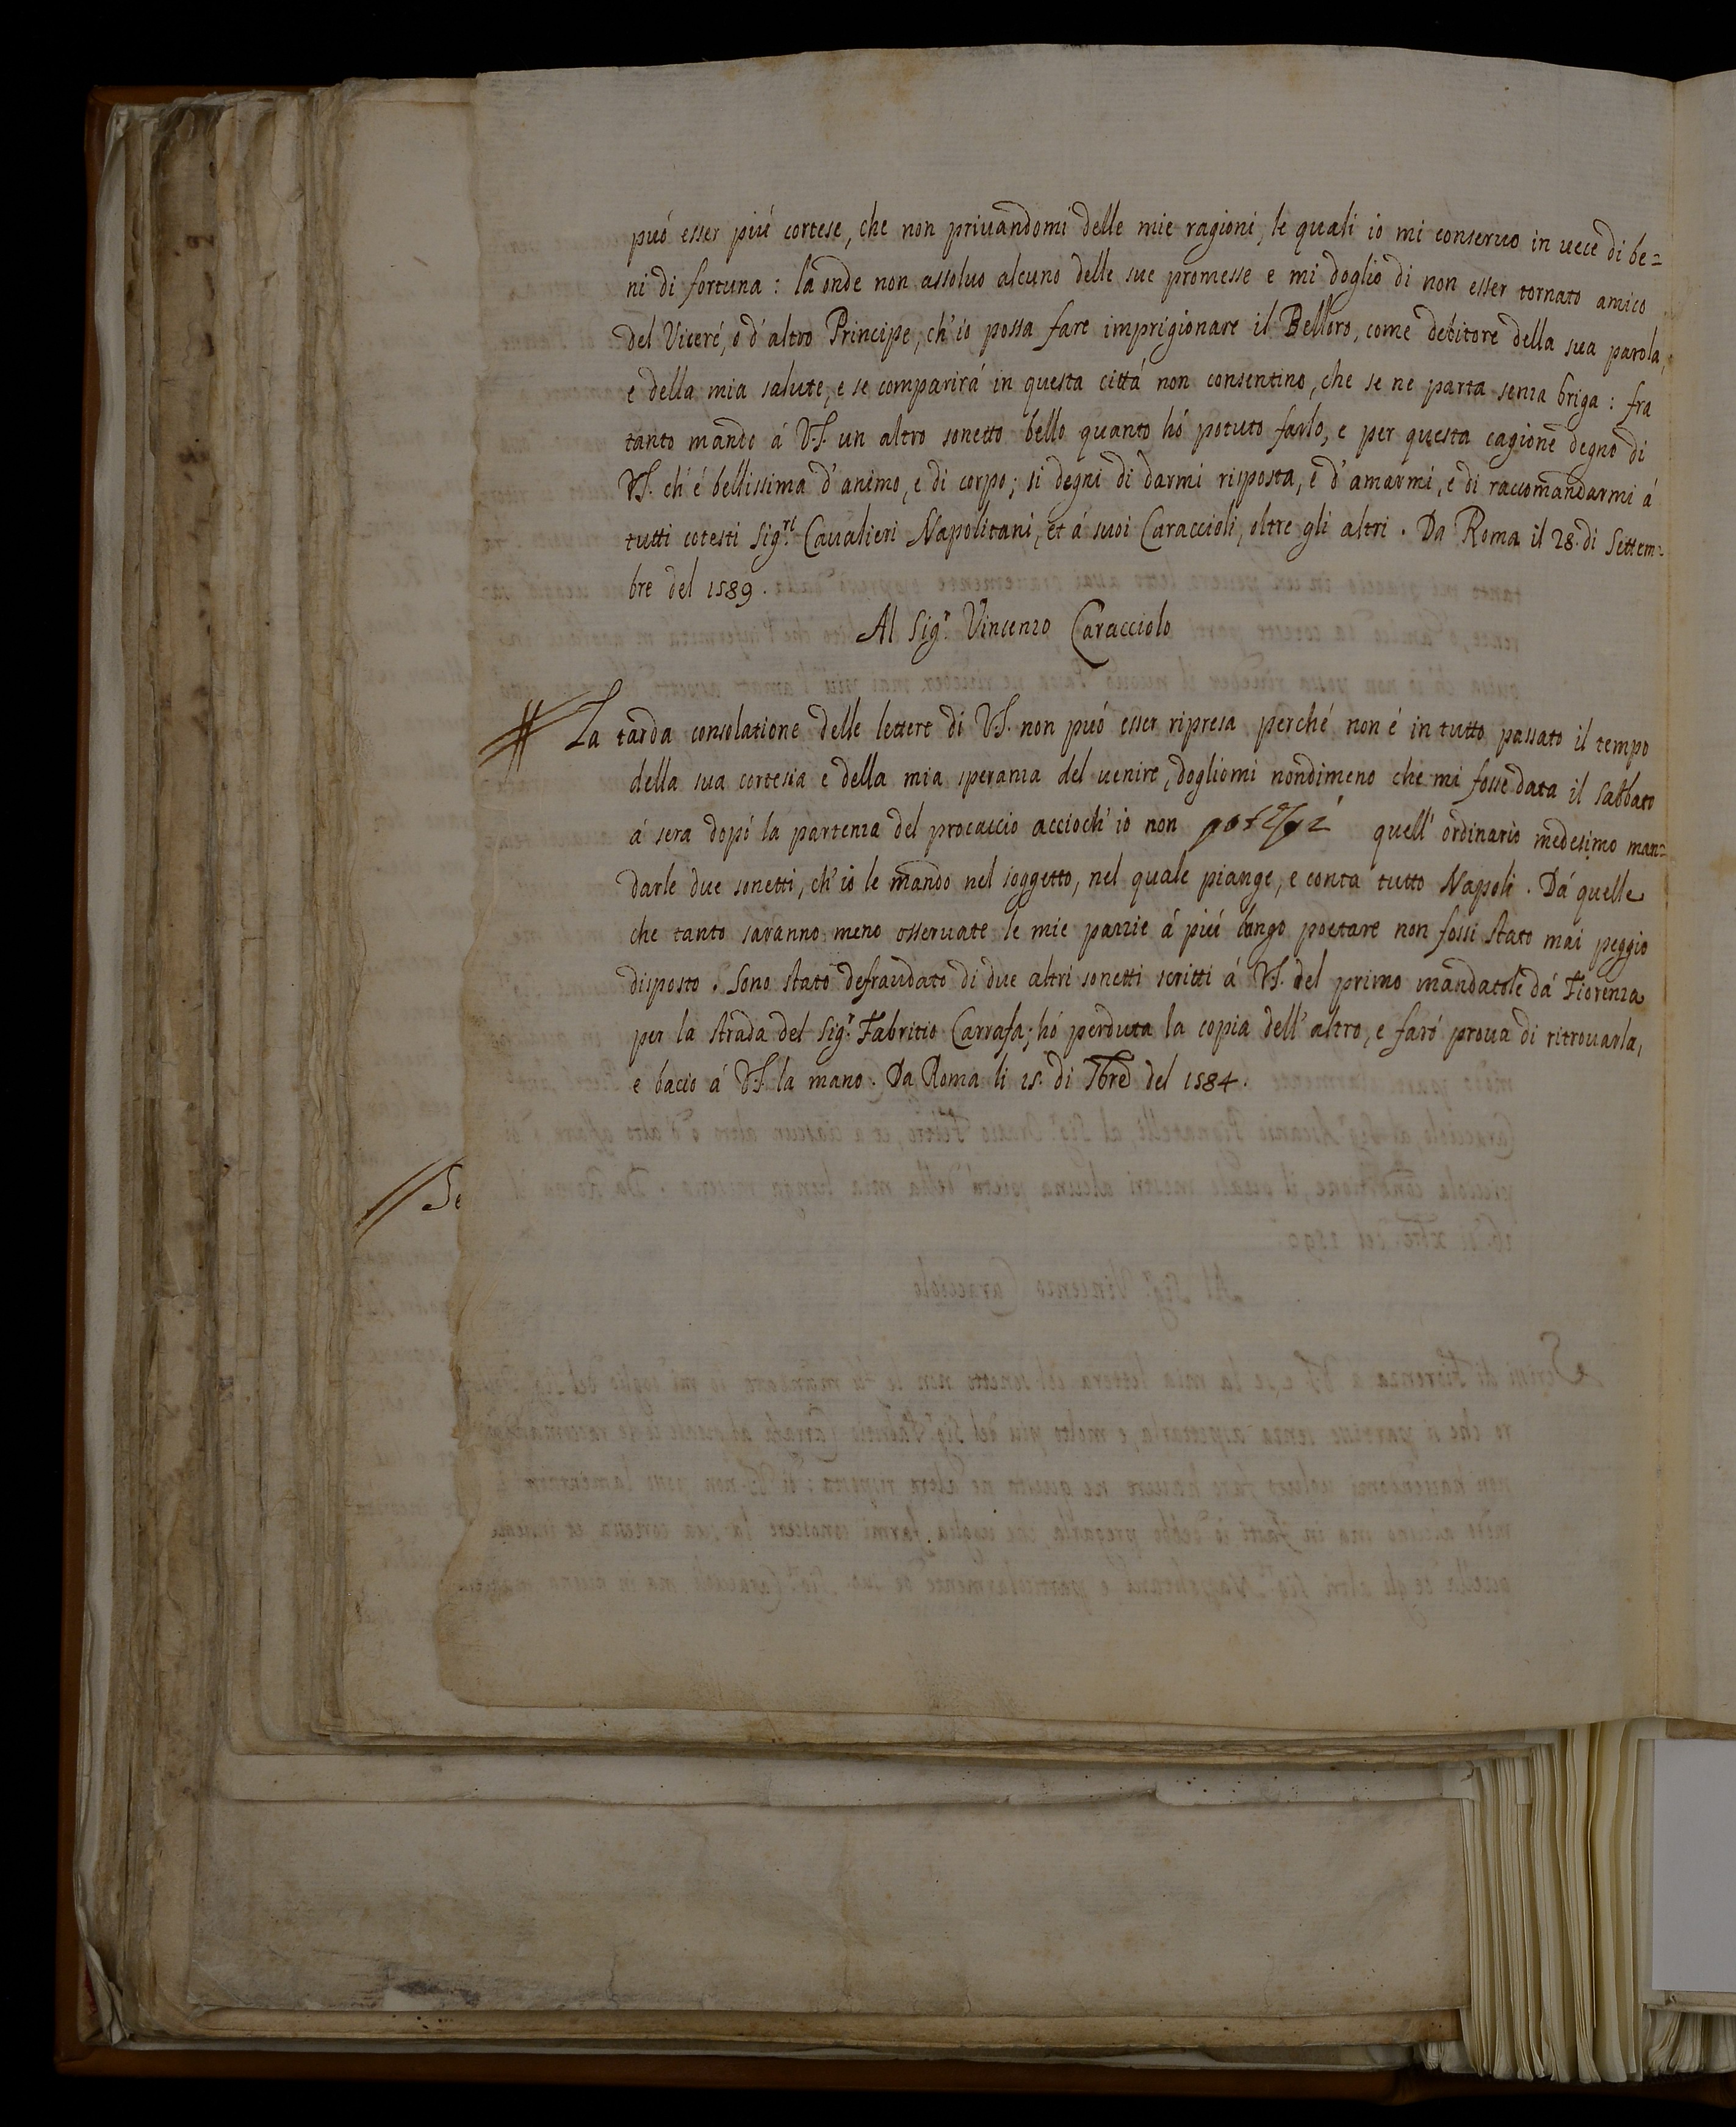 può esser più cortese, che non priuandomi delle mie ragioni, le quali io mi conseruo in uece di be=
ni di fortuna: la onde non assoluo alcuno delle sue promesse e mi doglio di non esser tornato amico
del Viceré, ó d'altro Principe, ch'io possa fare imprigionare il Belloro, come debitore della sua parola,
e della mia salute, e se comparirá in questa cittá non consentino, che se ne parta senza briga: fra
tanto mando á V.S. un altro sonetto bello quanto hó potuto farlo, e per questa cagione degno di
V.S. ch'é bellissima d'animo, e di corpo; si degni di darmi risposta, e d'amarmi, e di raccomandarmi á
tutti cotesti Sig.ri Caualieri Napolitani, et á suoi Caraccioli, oltre gli altri. Da Roma il 28. di Settem=
bre del 1589.
Al Sig.r Vincenzo Caracciolo
La tarda consolatione delle lettere di V.S. non puó esser ripresa perché non é in tutto passato il tempo
della sua cortesia e della mia speranza del uenire, dogliomi nondimeno che mi fosse data il Sabbato
á sera dopó la partenza del procaccio accioch'io non quell'ordinario medesimo man=
darle due sonetti, ch'io le mando nel soggetto, nel quale piange, e conta tutto Napoli. Dá quelle
che tanto saranno meno osseruate le mie pazzie á piú longo poetare non fossi stato mai peggio
disposto. Sono stato defraudato di due altri sonetti scritti á V.S. del primo mandatole dá Fiorenza
per la strada del Sig.r Fabritio Carrafa; hó perduta la copia dell'altro, e faró proua di ritrouarla,
e bacio á V.S. la mano. Da Roma li 15. di 7bre del 1584.
Se